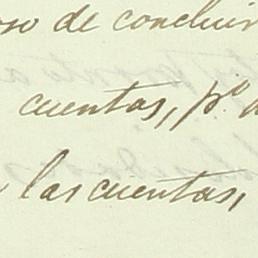 oso de concluir
cuentas, p.º
las cuentas,